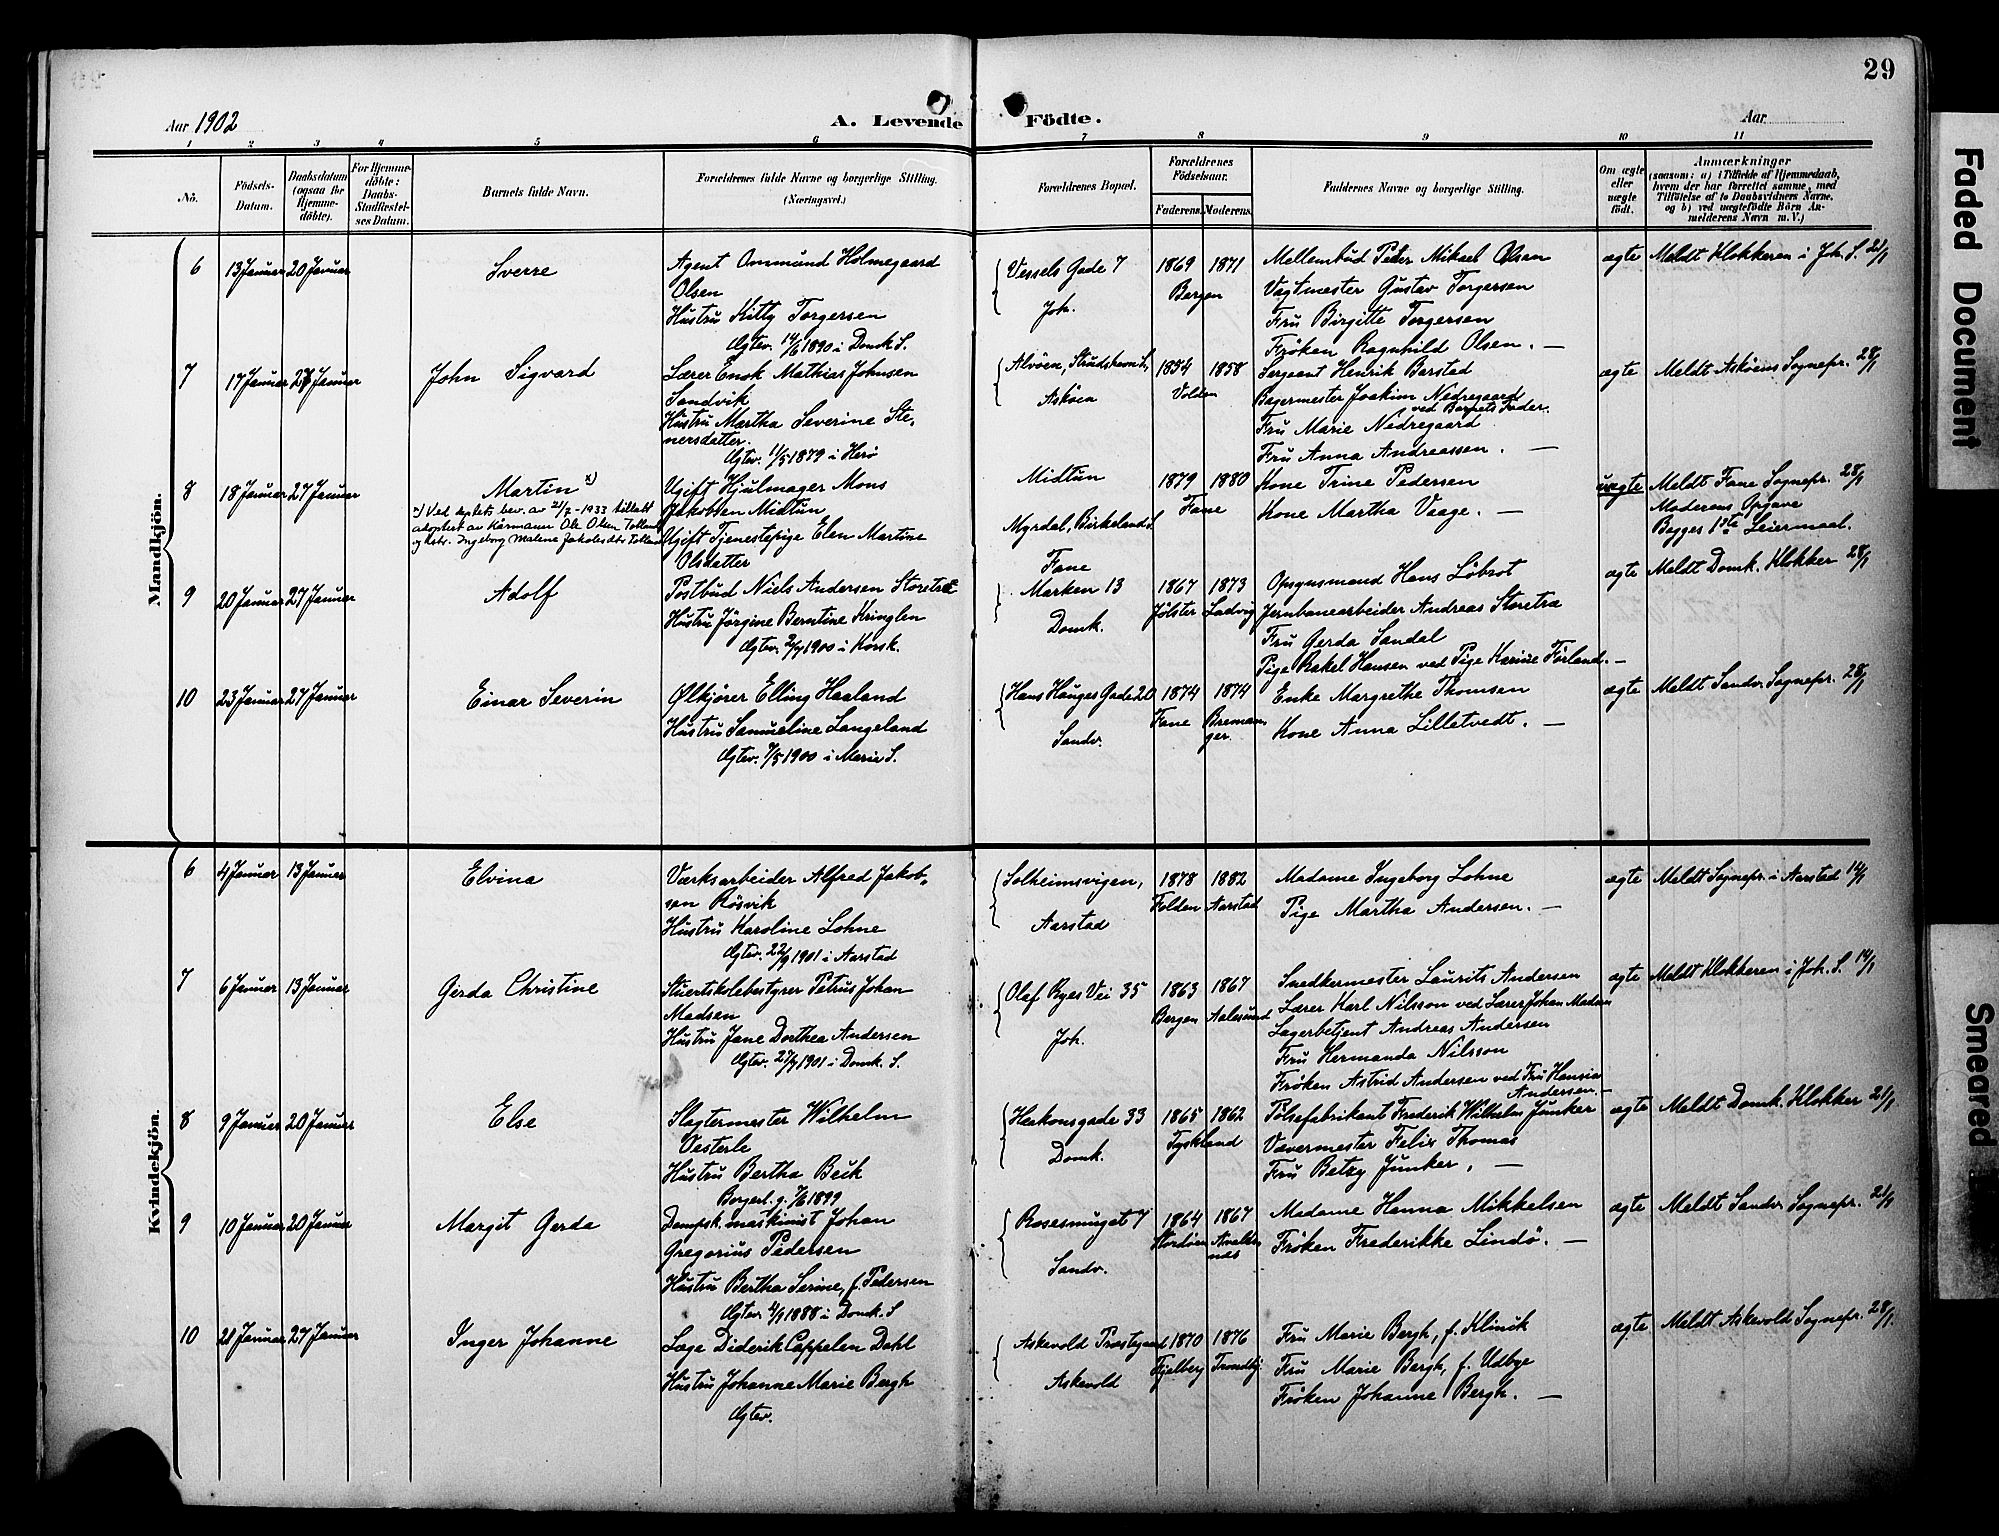 29
Aar 1902
A. Levende Födte.
Aar
1 2 3 4 5 6 7 8 9 10 11
No.
Födsels-Datum.
Daabsdatum (ogsaa for Hjemme-döbte).
For Hjemme-döbte: Daabs-Stadfæstel-ses Datum.
Barnets fulde Navn.
Forældrenes fulde Navne og borgerlige Stilling. (Næringsvei.)
Forældrenes Bopæl.
Forældrenes Födselsaar.
Faderens. Moderens.
Faddernes Navne og borgerlige Stilling.
Om ægte eller uægte födt.
Anmærkninger
(saasom: a) i Tilfælde af Hjemmedaab,
hvem der har forrettet samme, med
Tilföielse af to Daabsvidners Navne,
og b) ved uægtefödte Börn An-
melderens Navn m. V.)
Mandkjön.
6 13 Januar 20 Januar Sverre
Agent Ommund Holmegaard
Olsen
Hustru Kitty Torgersen
Ægtev. 14/6 1890 i Domk S.
Vessels Gade 7
Joh.
1869 1871
Bergen
Mellembud Peder Mikael Olsen
Vagtmester Gustav Torgersen
Fru Birgitte Torgersen
Frøken Ragnhild Olsen. —
ægte Meldt Klokkeren i Joh. S. 21/1
7 17 Januar 27 Januar John Sigvard
Lærer Enok Mathias Johnsen
Sandvik
Hustru Martha Severine Ste-
nersdatter.
Ægtev. 1/5 1879 i Herö
Alvöen, Strudshavn S.
Asköen
1854 1858
Volden
Sergeant Henrik Barstad
Bagermester Joakim Nedregaard
ved Barnets Fader.
Fru Marie Nedregaard
Fru Anna Andreassen. —
ægte Meldt Asköens Sognepr. 28/1
8 18 Januar 27 Januar Martin x)
x) Ved dept.s bev. av 21/7-1933 tillatt
adoptert av kårmann Ole Olsen Tokland
og hstr. Ingeborg Malene Jakobsdtr Tokland
Ugift Hjulmager Mons
Jakobsen Midtun
Ugift Tjenestepige Elen Martine
Olsdatter
Midtun
Myrdal, Birkeland S.
Fane
1879 1880
Fane
Kone Trine Pedersen
Kone Martha Vaage. —
uægte Meldt Fane Sognepr. 28/1
Moderens Opgave
Begges 1ste Leiermaal.
9 20 Januar 27 Januar Adolf
Postbud Niels Andersen Storetræ
Hustru Jörgine Berntine Kringlen
Ægtev. 2/7 1900 i Korsk.
Marken 13
Domk.
1867 1873
Jölster Ladvig
Opsynsmand Hans Löbrot
Jernbanearbeider Andreas Storetræ
Fru Gerda Sandal
Pige Rakel Hansen ved Pige Karine Förland. —
ægte Meldt Domk. Klokker 28/1
10 23 Januar 27 Januar Einar Severin
Ølkjører Elling Haaland
Hustru Samueline Langeland
Ægtev. 7/5 1900 i Marie S.
Hans Hauges Gade 20
Sandv.
1874 1874
Fane Breman-
ger.
Enke Margrethe Thomsen
Kone Anna Lilletvedt. —
ægte Meldt Sandv. Sognepr. 28/1
Kvindekjön.
6 4 Januar 13 Januar Elvina
Værksarbeider Alfred Jakob-
sen Rösvik
Hustru Karoline Lohne
Ægtev. 22/9 1901 i Aarstad
Solheimsvigen,
Aarstad
1878 1882
Folden Aarstad
Madame Ingeborg Lohne
Pige Martha Andersen. —
ægte Meldt Sognepr. i Aarstad 14/1
7 6 Januar 13 Januar Gerda Christine
Stuertskolebestyrer Petrus Johan
Madsen
Hustru Jane Dorthea Andersen
Ægtev. 27/7 1901 i Domk. S.
Olef Ryes Vei 35
Joh.
1863 1867
Bergen Aalesund
Snedkermester Laurits Andersen
Lærer Karl Nilsson ved Lærer Johan Madsen
Lagerbetjent Andreas Andersen
Fru Hermanda Nilsson
Frøken Astrid Andersen ved Fru Hansia
Andersen —
ægte Meldt Klokkeren i Joh. S. 14/1
8 9 Januar 20 Januar Else
Slagtermester Wilhelm
Oesterle
Hustru Bertha Beik
Borgerl. g. 7/6 1899
Haakonsgade 33
Domk.
1865 1862
Tyskland
Pølsefabrikant Frederik Wilhelm Junker
Vævermester Felix Thomas
Fru Betzy Junker. —
ægte Meldt Domk. Klokker 21/1
9 10 Januar 20 Januar Margit Gerda
Dampsk.maskinist Johan
Gregorius Pedersen
Hustru Bertha Serine, f. Pedersen
Ægtev. 4/9 1888 i Domk. S
Rosesmuget 7
Sandv.
1864 1867
Stordöen
Madame Hanna Mikkelsen
Frøken Frederikke Lindö. —
ægte Meldt Sandv. Sognepr. 21/1
10 21 Januar 27 Januar Inger Johanne
Læge Diderik Cappelen Dahl
Hustru Johanne Marie Bergh
Ægtev.
Askevold Præstegaard
Askevold
1870 1876
Fjelberg Trondhj.
Fru Marie Bergh, f. Klinik
Fru Marie Bergh, f. Udbye
Frøken Johanne Bergh. —
ægte Meldt Askevold Sognepr. 28/1
Faded Document
Smeared